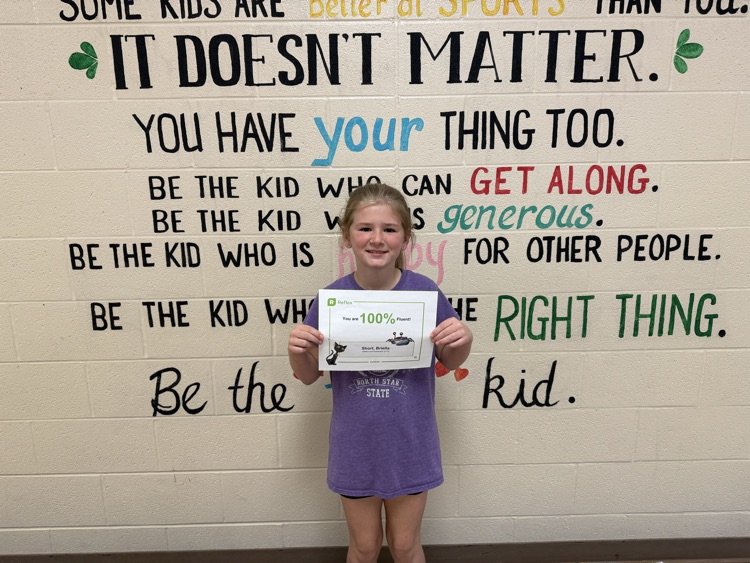 SOME KIDS ARE Better at SPORTS THAN YOU.
IT DOESN'T MATTER.
YOU HAVE your THING TOO.
BE THE KID WHO CAN GET ALONG.
BE THE KID W S generous.
BE THE KID WHO IS happy FOR OTHER PEOPLE.
BE THE KID WHO HE RIGHT THING.
Be the kid.
Reflex
You are 100% Fluent!
Short, Brielle
NORTH STAR
STATE